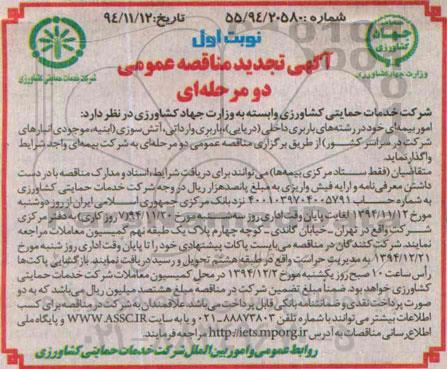 شماره: ۵۵/۹۴/۲۰۵۸۰
تاریخ: ۹۴/۱۱/۱۲
وزارت جهاد کشاورزی
شرکت خدمات حمایتی کشاورزی
نوبت اول
آگهی تجدید مناقصه عمومی
دو مرحله‌ای
شرکت خدمات حمایتی کشاورزی وابسته به وزارت جهاد کشاورزی در نظر دارد:
امور بیمه‌ای خود در رشته‌های باربری داخلی (دریایی)، باربری وارداتی، آتش سوزی (ابنیه، موجودی انبارهای
شرکت در سراسر کشور) از طریق برگزاری مناقصه عمومی دو مرحله‌ای به شرکت بیمه‌ای واجد شرایط
واگذار نماید.
متقاضیان (فقط ستادمرکزی بیمه‌ها) می‌توانند برای دریافت شرایط، اسناد و مدارک مناقصه با در دست
داشتن معرفی نامه و ارایه فیش واریزی به مبلغ پانصدهزار ریال در وجه شرکت خدمات حمایتی کشاورزی
به شماره حساب ۴۰۰۱۰۳۹۷۰۴۰۰۵۷۹۱ نزد بانک مرکزی جمهوری اسلامی ایران از روز دوشنبه
مورخ ۱۳۹۴/۱۱/۱۲ لغایت پایان وقت اداری روز سه‌شنبه مورخ ۹۴/۱۱/۲۰ (۷ روز کاری) به دفتر مرکزی
شرکت واقع در تهران - خیابان گاندی - کوچه چهارم پلاک یک طبقه نهم کمیسیون معاملات مراجعه
نمایند. شرکت کنندگان در مناقصه می‌بایست پاکات پیشنهادی خود را تا پایان وقت اداری روز شنبه مورخ
۱۳۹۴/۱۲/۱ به مدیریت حراست واقع در طبقه هشتم تحویل و رسید دریافت نمایند. بازگشایی پاکت‌ها
رأس ساعت ۱۰ صبح روز یکشنبه مورخ ۱۳۹۴/۱۲/۲ در محل کمیسیون معاملات شرکت خدمات حمایتی
کشاورزی خواهد بود. ضمناً مبلغ تضمین شرکت در مناقصه مبلغ هشتصد میلیون ریال می‌باشد که به دو
صورت پرداخت نقدی و ضمانتنامه بانکی قابل پرداخت می‌باشد. علاقمندان به شرکت در مناقصه برای کسب
اطلاعات بیشتر می‌توانند با شماره تلفن ۸۸۸۷۳۸۰۳-۰۲۱ و یا به سایت WWW.ASSC.IR و پایگاه ملی
اطلاع رسانی مناقصات به آدرس http://iets.mporg.ir مراجعه فرمایند.
روابط عمومی و امور بین الملل شرکت خدمات حمایتی کشاورزی